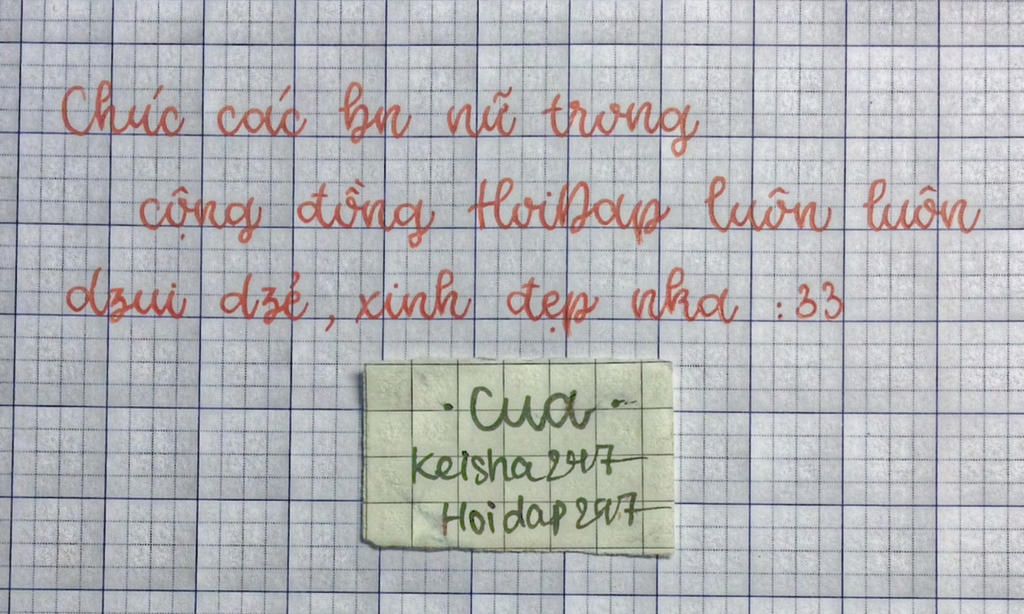 Chúc các bn nữ trong
cộng đồng HoiDap luôn luôn
dzui dzẻ, xinh đẹp nha :33
• Cua •
Keisha247
Hoidap247